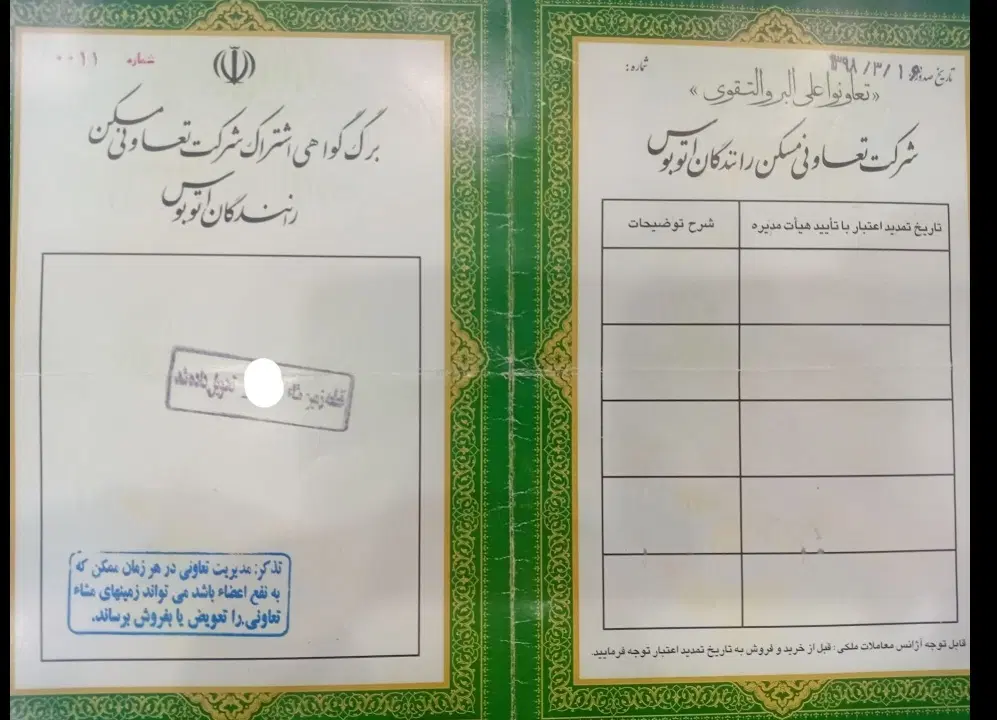 شماره ۰۰۱۱
برگ گواهی اشتراک شرکت تعاونی مسکن
رانندگان اتوبوس
تذکر: مدیریت تعاونی در هر زمان ممکن که
به نفع اعضاء باشد می تواند زمینهای مشاء
تعاونی را تعویض یا بفروش برساند.
تاریخ صدور:
شماره:
«تعاونوا علی البر والتقوی»
شرکت تعاونی مسکن رانندگان اتوبوس
تاریخ تمدید اعتبار با تأیید هیأت مدیره
شرح توضیحات
قابل توجه آژانس معاملات ملکی: قبل از خرید و فروش به تاریخ تمدید اعتبار توجه فرمایید.